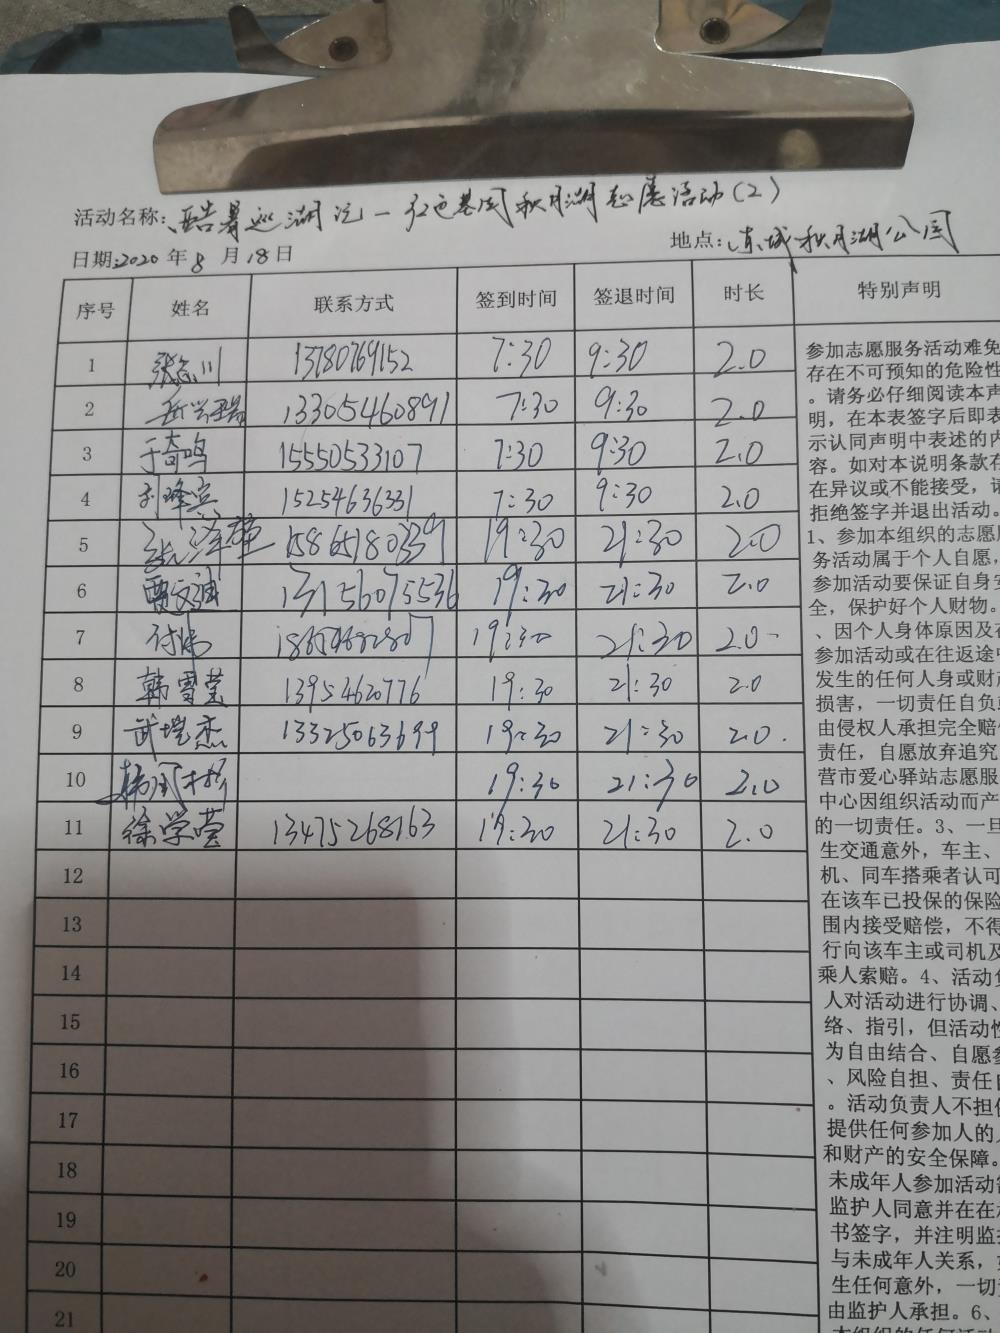 活动名称:酷暑巡湖记一红色基因秋月湖志愿活动(2)
日期:2020年8月18日 地点:东城秋月湖公园
序号 姓名 联系方式 签到时间 签退时间 时长 特别声明
1 张志川 13780769152 7:30 9:30 2.0
2 13305460891 7:30 9:30 2.0
3 于奇鸣 15550533107 7:30 9:30 2.0
4 刘峰宾 15254636331 7:30 9:30 2.0
5 15865180339 19:30 21:30 2.0
6 13156075536 19:30 21:30 2.0
7 付伟 19:30 21:30 2.0
8 韩雪莹 13954620776 19:30 21:30 2.0
9 武堦杰 13325063699 19:30 21:30 2.0
10 19:30 21:30 2.0
11 徐学莹 13475268163 19:30 21:30 2.0
12
13
14
15
16
17
18
19
20
21
参加志愿服务活动难免
存在不可预知的危险性
。请务必仔细阅读本声
明，在本表签字后即表
示认同声明中表述的内
容。如对本说明条款存
在异议或不能接受，请
拒绝签字并退出活动。
1、参加本组织的志愿服
务活动属于个人自愿，
参加活动要保证自身安
全，保护好个人财物。
、因个人身体原因及在
参加活动或在往返途中
发生的任何人身或财产
损害，一切责任自负或
由侵权人承担完全赔偿
责任，自愿放弃追究
营市爱心驿站志愿服
中心因组织活动而产
的一切责任。3、一旦
生交通意外，车主、
机、同车搭乘者认可
在该车已投保的保险
围内接受赔偿，不得
行向该车主或司机及
乘人索赔。4、活动负
人对活动进行协调、
络、指引，但活动性
为自由结合、自愿参
、风险自担、责任自
。活动负责人不担任
提供任何参加人的人
和财产的安全保障。
未成年人参加活动需
监护人同意并在在
书签字，并注明监护
与未成年人关系，如
生任何意外，一切责
由监护人承担。6、
本组织的任何活动